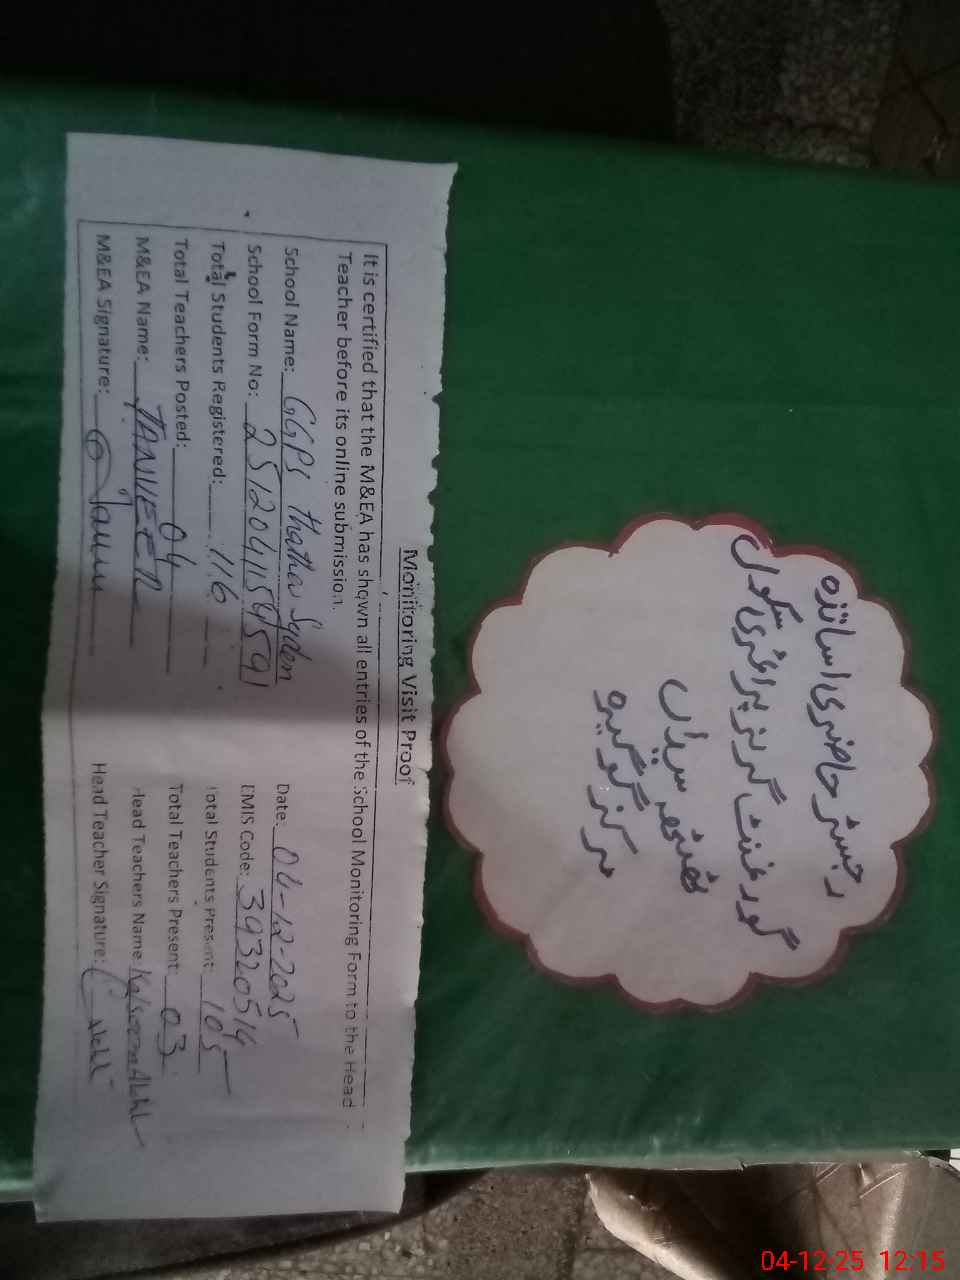 Monitoring Visit Proof
It is certified that the M&EA has shown all entries of the School Monitoring Form to the Head
Teacher before its online submission.
School Name: GGPS Thatha Syden Date: 04-12-2025
School Form No: EMIS Code: 39320514
Total Students Registered: 116 Total Students Present: 105
Total Teachers Posted: 04 Total Teachers Present: 03
M&EA Name: TANVEER Head Teachers Name Kalsoom Akht
M&EA Signature: Head Teacher Signature:
رجسٹر حاضری اساتذہ
گورنمنٹ گرلز پرائمری سکول
ٹھٹھہ سیداں
مرکز گوگیو
04-12-25 12:15